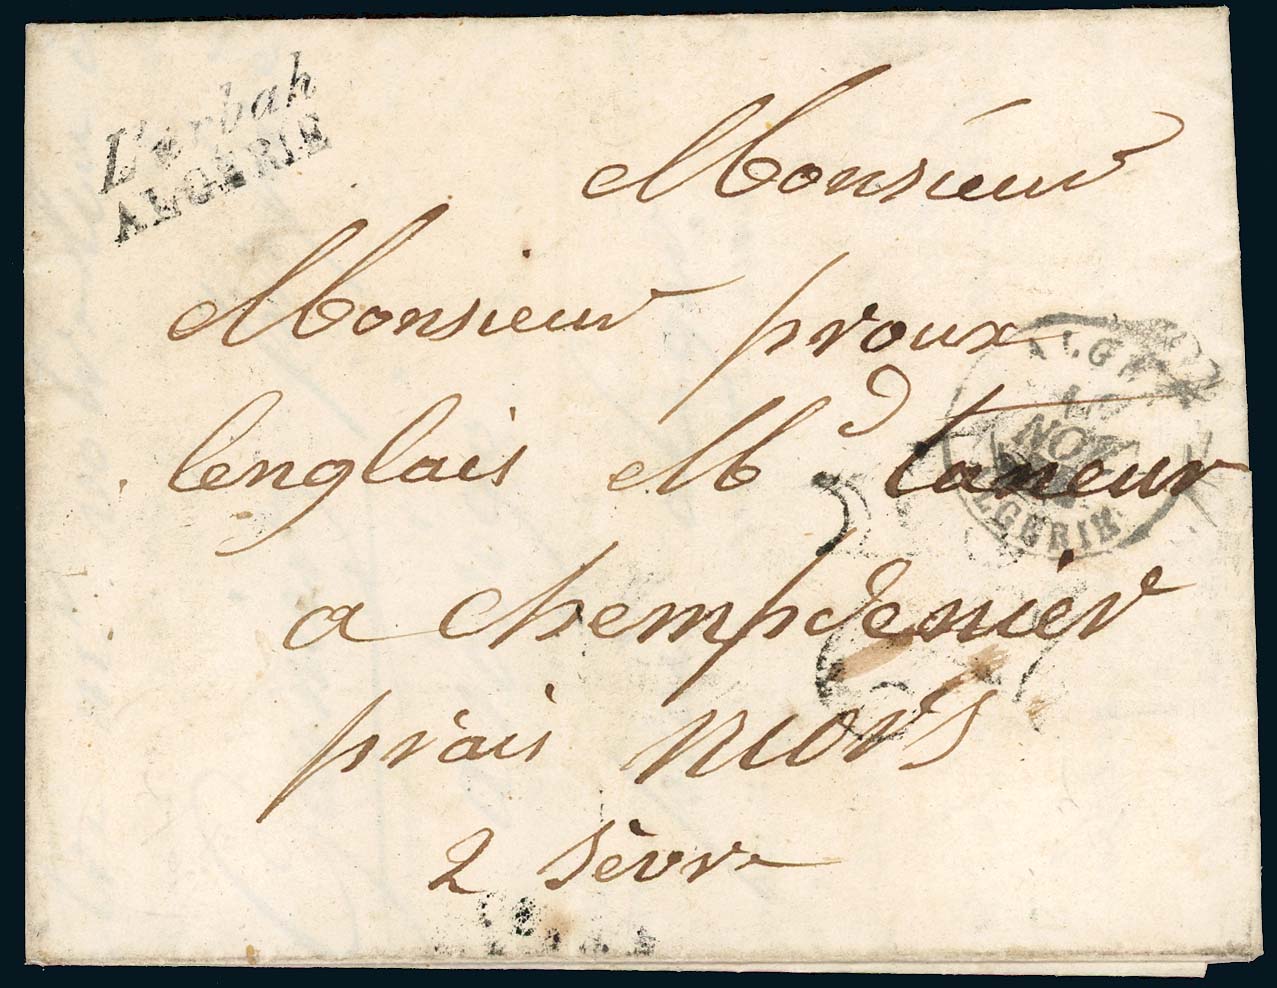 L'arbah
ALGÉRIE
Monsieur
Monsieur proux
lenglais Md taneur
a chempdenier
prais niors
2 sèvre
ALGER
NOV
ALGERIE